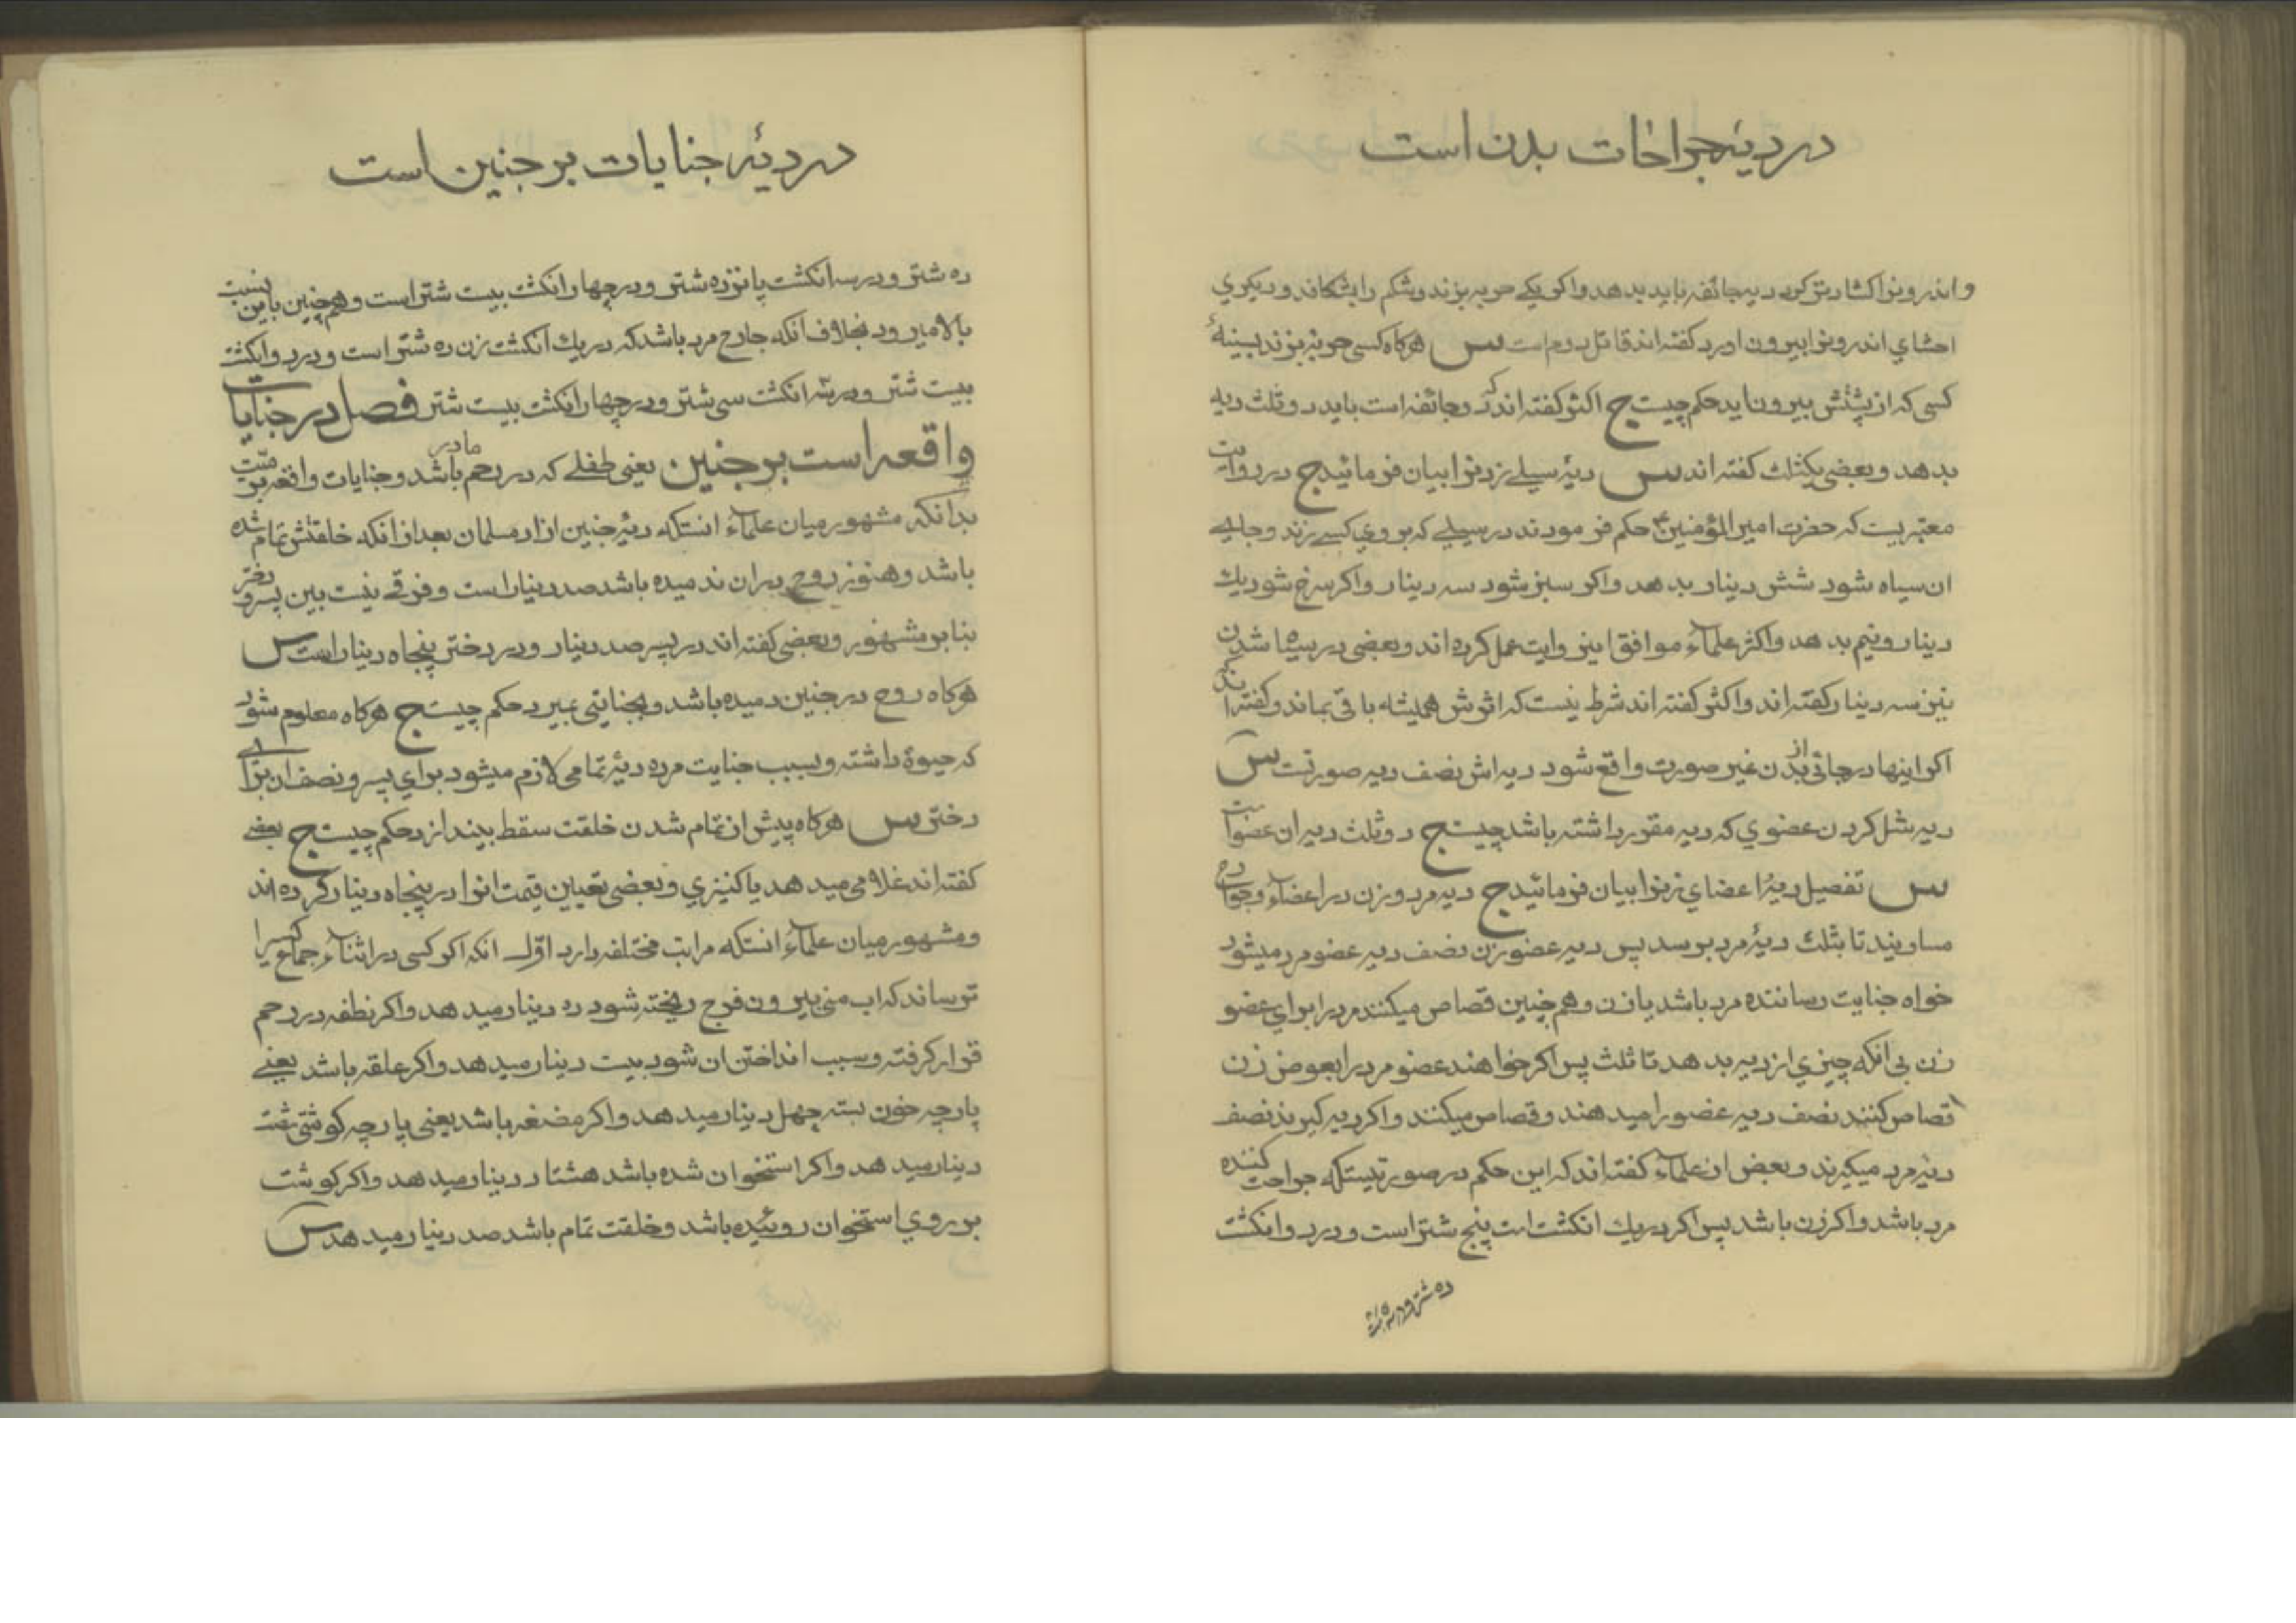 در دیۀ جراحات بدن است
و اندرونرا کشادتر کرد دیه جائفه باید بدهد و اکر یکے حربه بزند و شکم را بشکافد و دیکري
احشاي اندرونرا بیرون اورد کفته اند قاتل دوم است س هرکاه کسی حربه بزند بسینۀ
کسی که از پشتش بیرون اید حکم چیست ج اکثر کفته اند که دو جائفه است باید دو ثلث دیه
بدهد و بعضی یکثلث کفته اند س دیۀ سیلے زدنرا بیان فرمائید ج در روایت
معتبریست که حضرت امیر المؤمنین ع حکم فرمودند در سیلے که بروي کسے زند و جاے
ان سیاه شود شش دینار بدهد و اکر سبز شود سه دینار و اکر سرخ شود یك
دینار و نیم بدهد و اکثر علماء موافق اینروایت عمل کرده اند و بعضی در سیاه شدن
نیز سه دینار کفته اند و اکثر کفته اند شرط نیست که اثرش همیشه باقی بماند و کفته اند که
اکر اینها در جائی از بدن غیر صورت واقع شود دیه اش نصف دیه صورتست س
دیه شل کردن عضوي که دیه مقرر داشته باشد چیست ج دو ثلث دیه ان عضو است
س تفصیل دیۀ اعضاي زنرا بیان فرمائید ج دیه مرد و زن در اعضاء و جراحات
مساویند تا بثلث دیۀ مرد برسد پس دیه عضو زن نصف دیه عضو مرد میشود
خواه جنایت رساننده مرد باشد یا زن و همچنین قصاص میکنند مرد را براي عضو
زن بی انکه چیزي از دیه بدهد تا ثلث پس اکر خواهند عضو مرد را بعوض زن
قصاص کنند نصف دیه عضو را میدهند و قصاص میکنند و اکر دیه کیرند نصف
دیه مرد میکیرند و بعض از علماء کفته اند که این حکم در صورتیستکه جراحت کننده
مرد باشد و اکر زن باشد پس اکر در یك انکشت است پنج شتر است و در دو انکشت
ده شتر و در سه
در دیۀ جنایات بر جنین است
ده شتر و در سه انکشت پانزده شتر و در چهار انکشت بیست شتر است و همچنین باین نسبت
بالا میرود بخلاف انکه جارح مرد باشد که در یك انکشت زن ده شتر است و در دو انکشت
بیست شتر و در سه انکشت سی شتر و در چهار انکشت بیست شتر فصل در جنایات
واقعه است بر جنین یعنی طفلے که در رحم مادر باشد و جنایات واقعه بر میّت
بدانکه مشهور میان علماء انستکه دیۀ جنین ازاد مسلمان بعد از انکه خلقتش تمام شده
باشد و هنوز روح در ان ندمیده باشد صد دینار است و فرقے نیست بین پسر و دختر
بنا بر مشهور و بعضی کفته اند در پسر صد دینار و در دختر پنجاه دینار است س
هرکاه روح در جنین دمیده باشد و بجنایتی بمیرد حکم چیست ج هرکاه معلوم شود
که حیوة داشته و بسبب جنایت مرده دیۀ تمامی لازم میشود براي پسر و نصف ان براے
دختر س هرکاه پیش از تمام شدن خلقت سقط بیندازد حکم چیست ج بعضے
کفته اند غلامی میدهد یا کنیزي و بعضی تعیین قیمت انرا در پنجاه دینار کرده اند
و مشهور میان علماء انستکه مراتب مختلفه دارد اوّل انکه اکر کسی در اثناء جماع کسیرا
ترساند که اب منی بیرون فرج ریخته شود ده دینار میدهد و اکر نطفه در رحم
قرار کرفته و سبب انداختن ان شود بیست دینار میدهد و اکر علقه باشد یعنے
پارچه خون بسته چهل دینار میدهد و اکر مضغه باشد یعنی پارچه کوشتی شصت
دینار میدهد و اکر استخوان شده باشد هشتاد دینار میدهد و اکر کوشت
بر روي استخوان روئیده باشد و خلقت تمام باشد صد دینار میدهد س